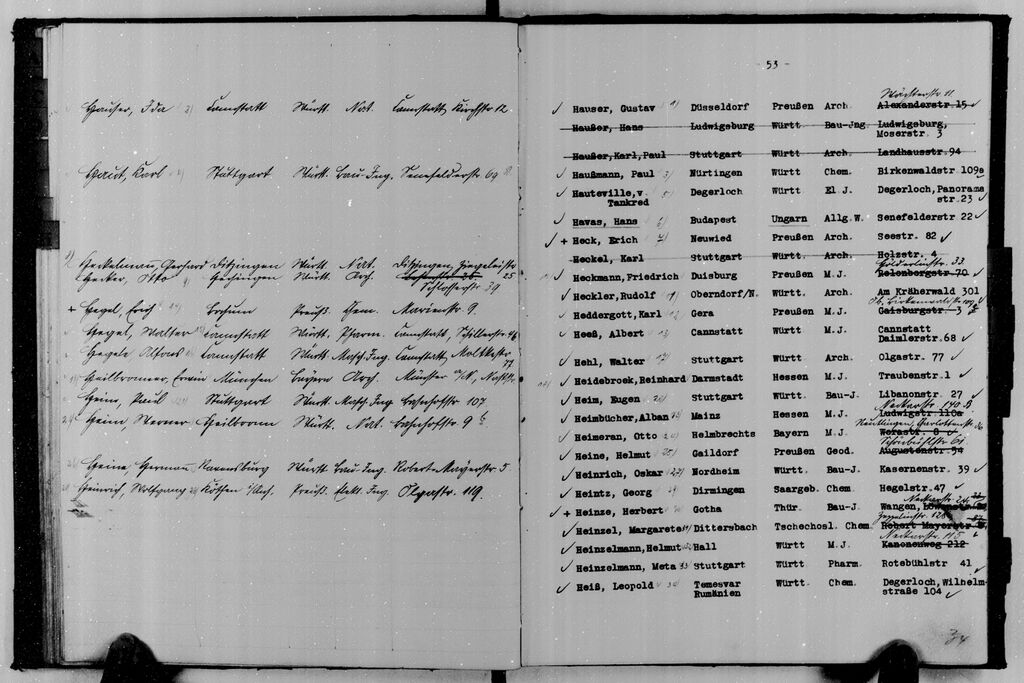 Hauser, Ida 2) Cannstatt Württ. Nat. Cannstatt, Kirchstr. 12
Haut, Karl 4) Stuttgart Württ. Bau-Ing. Senefelderstr. 69
Heckelmann, Gerhard Ditzingen Württ. Nat. Ditzingen, Ziegeleistr. 25
Hecker, Otto Württ. Arch.
Schlosserstr. 29
+ Hegel, Erich Bochum Preuß. Chem. Marienstr. 9.
Hegel, Walter Cannstatt Württ. Pharm. Cannstatt, Schillerstr. 46
Hegele Alfons Cannstatt Württ. Masch.Ing. Cannstatt, Moltkestr. 77
Heilbronner, Erwin München Bayern Arch. Münster a/N.,
Heim, Paul Stuttgart Württ. Masch.Ing. Bahnhofstr. 107
Heim Werner Heilbronn Württ. Nat. Bahnhofstr. 9 b
Heine, Herman Ravensburg Württ. Bau-Ing. Robert-Mayerstr. 5
Heinrich, Wolfgang Köthen i/Anh. Preuß. Elekt. Ing. Olgastr. 119.
- 53 -
✓ Hauser, Gustav 1) Düsseldorf Preußen Arch. Alexanderstr 15 ✓
Haußer, Hans Ludwigsburg Württ Bau-Jng. Ludwigsburg,
Moserstr. 3
Haußer,Karl,Paul Stuttgart Württ Arch. Landhausstr.94
✓ Haußmann, Paul 3) Nürtingen Württ Chem. Birkenwaldstr 109a
✓ Hauteville,v. 5) Degerloch Württ El J. Degerloch,Panorama
Tankred str.23 ✓
✓ Havas, Hans 6) Budapest Ungarn Allg.W. Senefelderstr 22 ✓
✓ + Heck, Erich 7) Neuwied Preußen Arch. Seestr. 82 ✓
Heckel, Karl Stuttgart Württ Arch. Holzstr. 4
Hölderlinstr. 33
✓ Heckmann,Friedrich Duisburg Preußen M.J. Relenbergstr 70 ✓
✓ Heckler, Rudolf Oberndorf/N. Württ. Arch. Am Kräherwald 301
Ob. Birkenwaldstr. 109
✓ Heddergott, Karl Gera Preußen M.J. Gaisburgstr 3
✓ Heeß, Albert Cannstatt Württ M.J. Cannstatt
Daimlerstr.68 ✓
✓ Hehl, Walter Stuttgart Württ. Arch. Olgastr. 77 ✓
✓ Heidebroek,Reinhard Darmstadt Hessen M.J. Traubenstr.1 ✓
✓ Heim, Eugen Stuttgart Württ. Bau-J. Libanonstr. 27 ✓
Neckarstr. 140 B.
✓ Heimbücher,Alban Mainz Hessen M.J. Ludwigstr 110a
✓ Heimeran, Otto Helmbrechts Bayern M.J. Werastr. 8
Schönbuchstr. 61
✓ Heine, Helmut Gaildorf Preußen Geod. Augustenstr. 94
✓ Heinrich, Oskar Nordheim Württ. Bau-J. Kasernenstr. 39 ✓
✓ Heintz, Georg Dirmingen Saargeb. Chem. Hegelstr.47 ✓
✓ + Heinze, Herbert Gotha Thür. Bau-J Wangen,
Zeppelinstr. 128
✓ Heinzel, Margarete Dittersbach Tschechosl. Chem. Robert Mayerstr
Neckarstr. 115
✓ Heinzelmann,Helmut Hall Württ M.J. Kanonenweg 212
✓ Heinzelmann, Meta 33 Stuttgart Württ Pharm. Rotebühlstr 41 ✓
✓ Heiß, Leopold Temesvar Württ. Chem. Degerloch,Wilhelm-
Rumänien straße 104 ✓